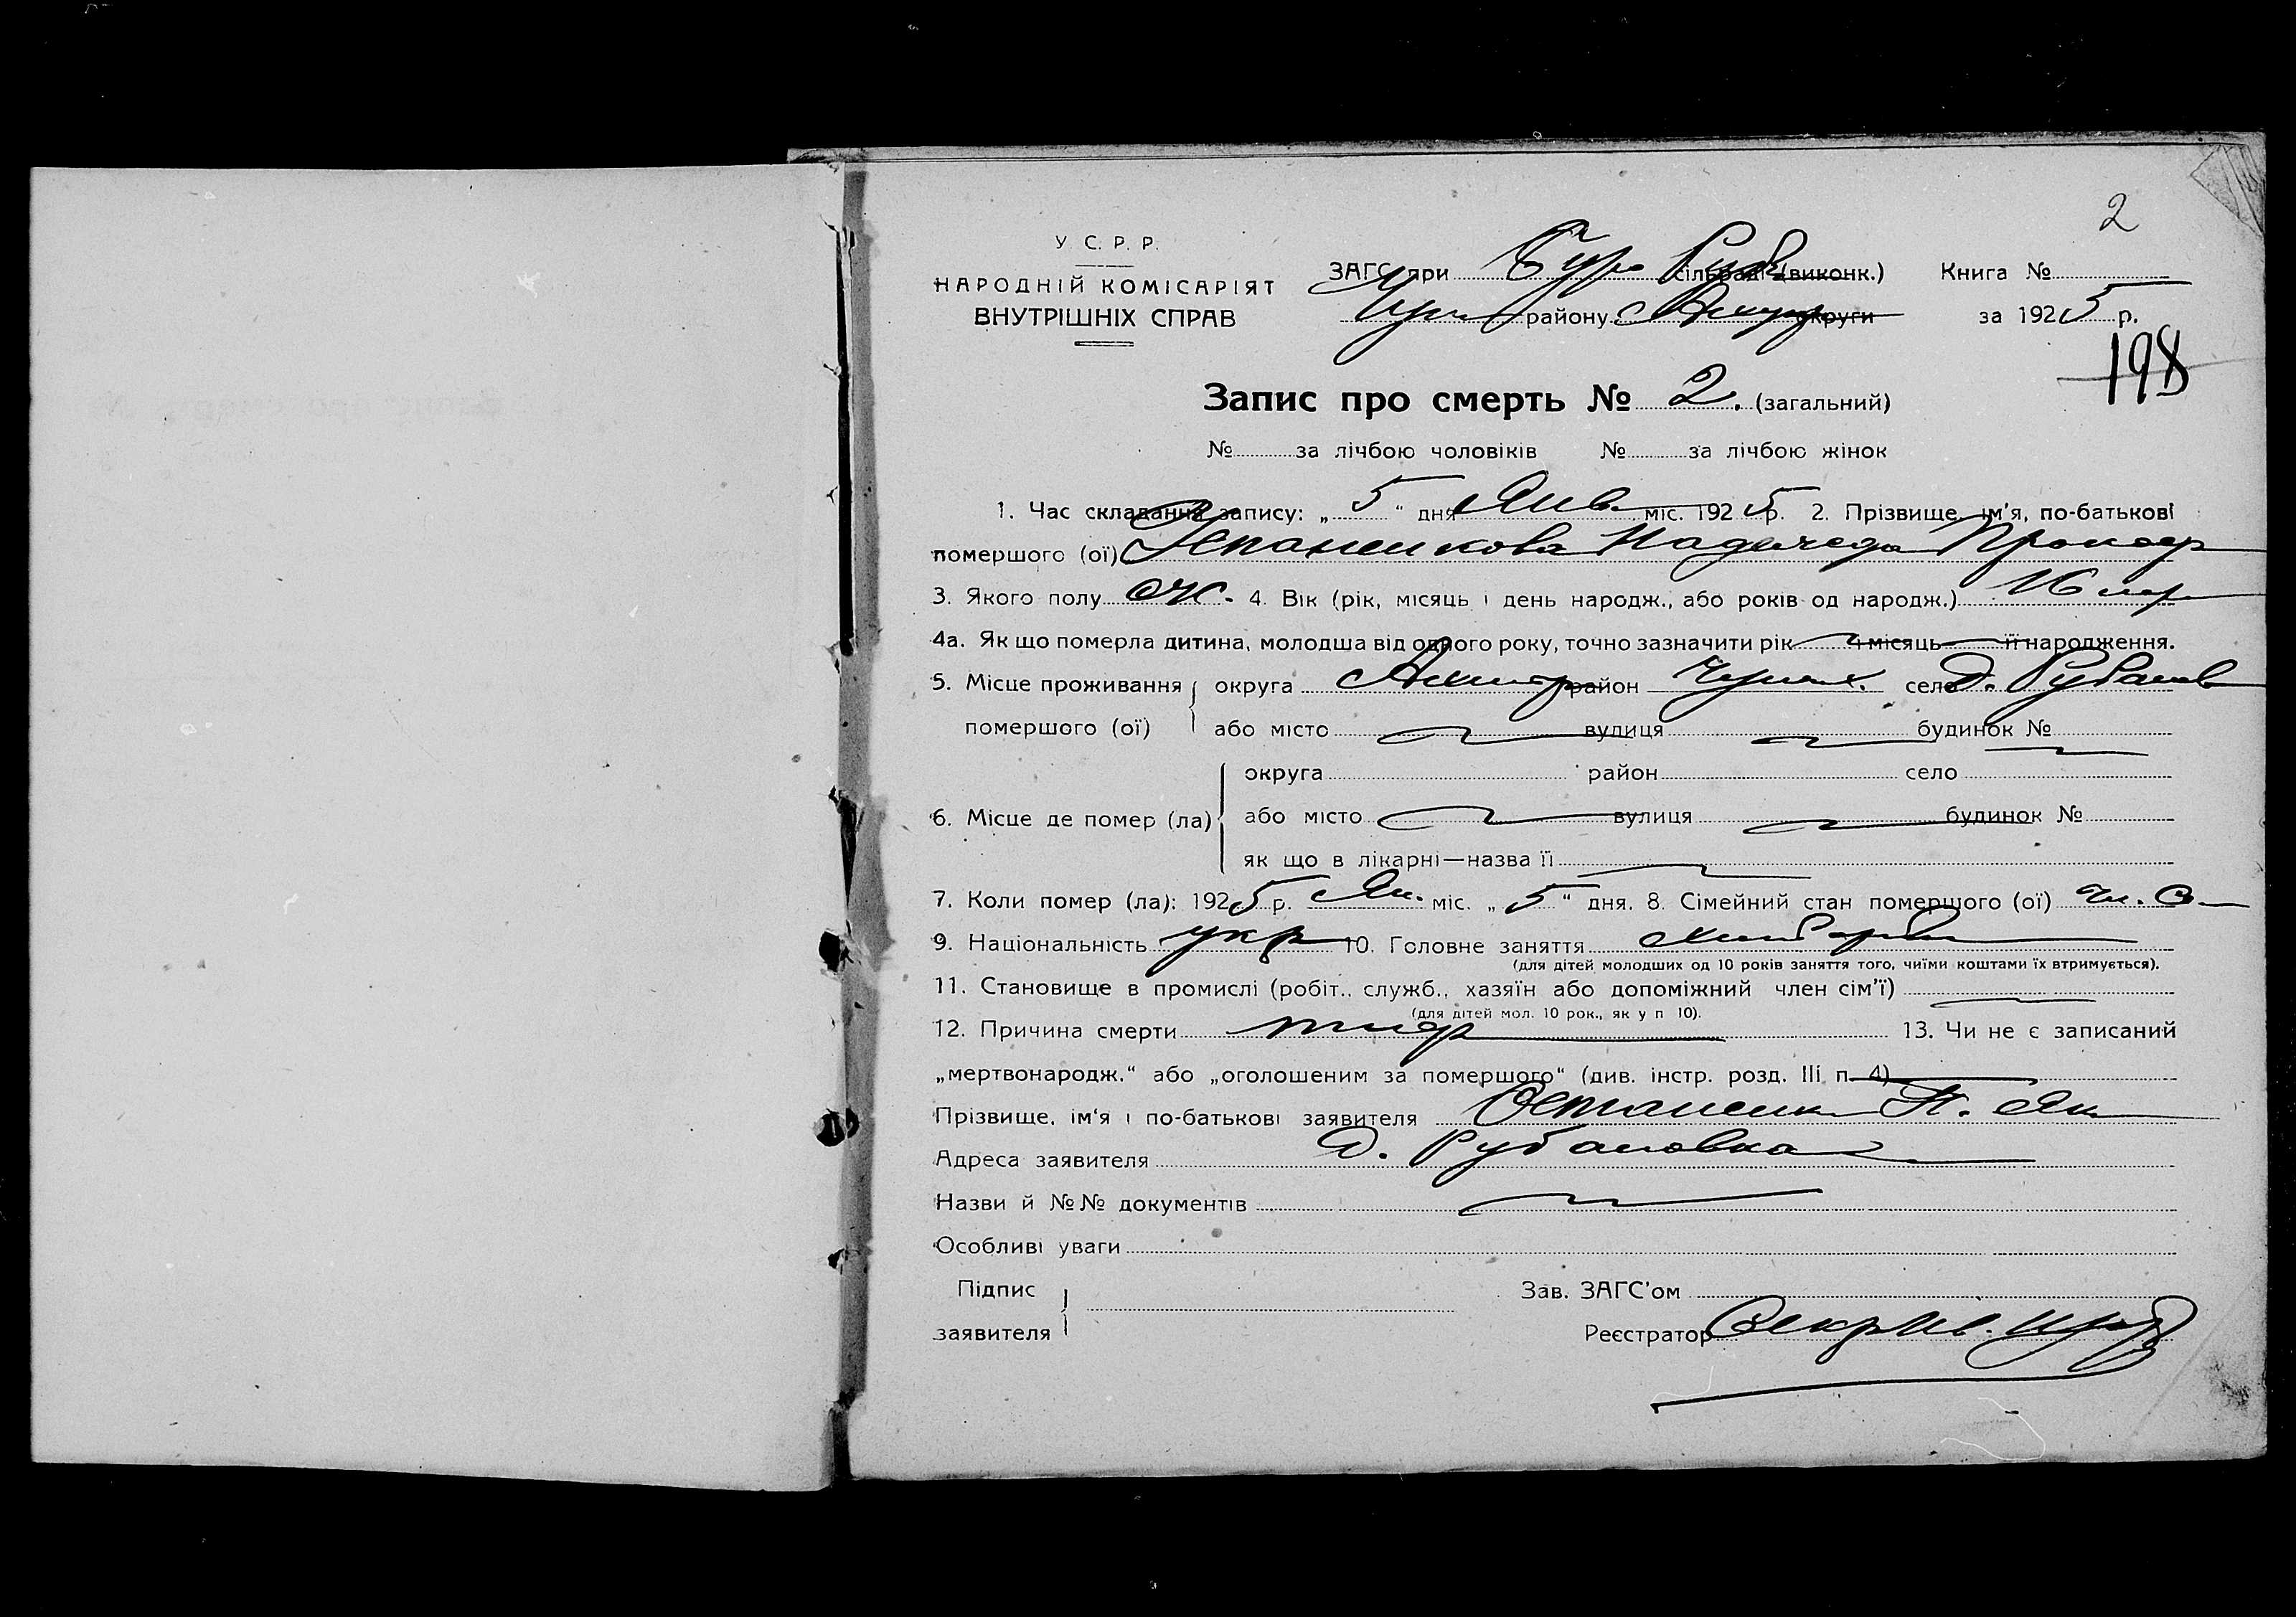 2
У. С. Р. Р.
НАРОДНІЙ КОМІСАРІЯТ
ВНУТРІШНІХ СПРАВ
ЗАГС при сільраді (виконк.) Книга №
району округи за 1925 р.
198
Запис про смерть № 2. (загальний)
№ за лічбою чоловіків № за лічбою жінок
1. Час складання запису: „ 5 " дня Янв. міс. 1925 р. 2. Прізвище, ім'я, по-батькові
помершого (ої)
3. Якого полу ж. 4. Вік (рік, місяць і день народж., або років од народж.) 16
4а. Як що померла дитина, молодша від одного року, точно зазначити рік і місяць її народження.
5. Місце проживання округа район село д.
помершого (ої) або місто вулиця будинок №
округа район село
6. Місце де помер (ла) або місто вулиця будинок №
як що в лікарні—назва її
7. Коли помер (ла): 1925 р. Ян. міс. „ 5 " дня. 8. Сімейний стан помершого (ої)
9. Національність укр 10. Головне заняття
(для дітей молодших од 10 років заняття того, чиїми коштами їх втримується).
11. Становище в промислі (робіт., служб., хазяїн або допоміжний член сім'ї)
(для дітей мол. 10 рок., як у п 10).
12. Причина смерти тиф 13. Чи не є записаний
„мертвонародж." або „оголошеним за помершого" (див. інстр. розд. III п. 4)
Прізвище, ім'я і по-батькові заявителя
Адреса заявителя д. Рубановка
Назви й №№ документів
Особливі уваги
Підпис Зав. ЗАГС'ом
заявителя Реєстратор